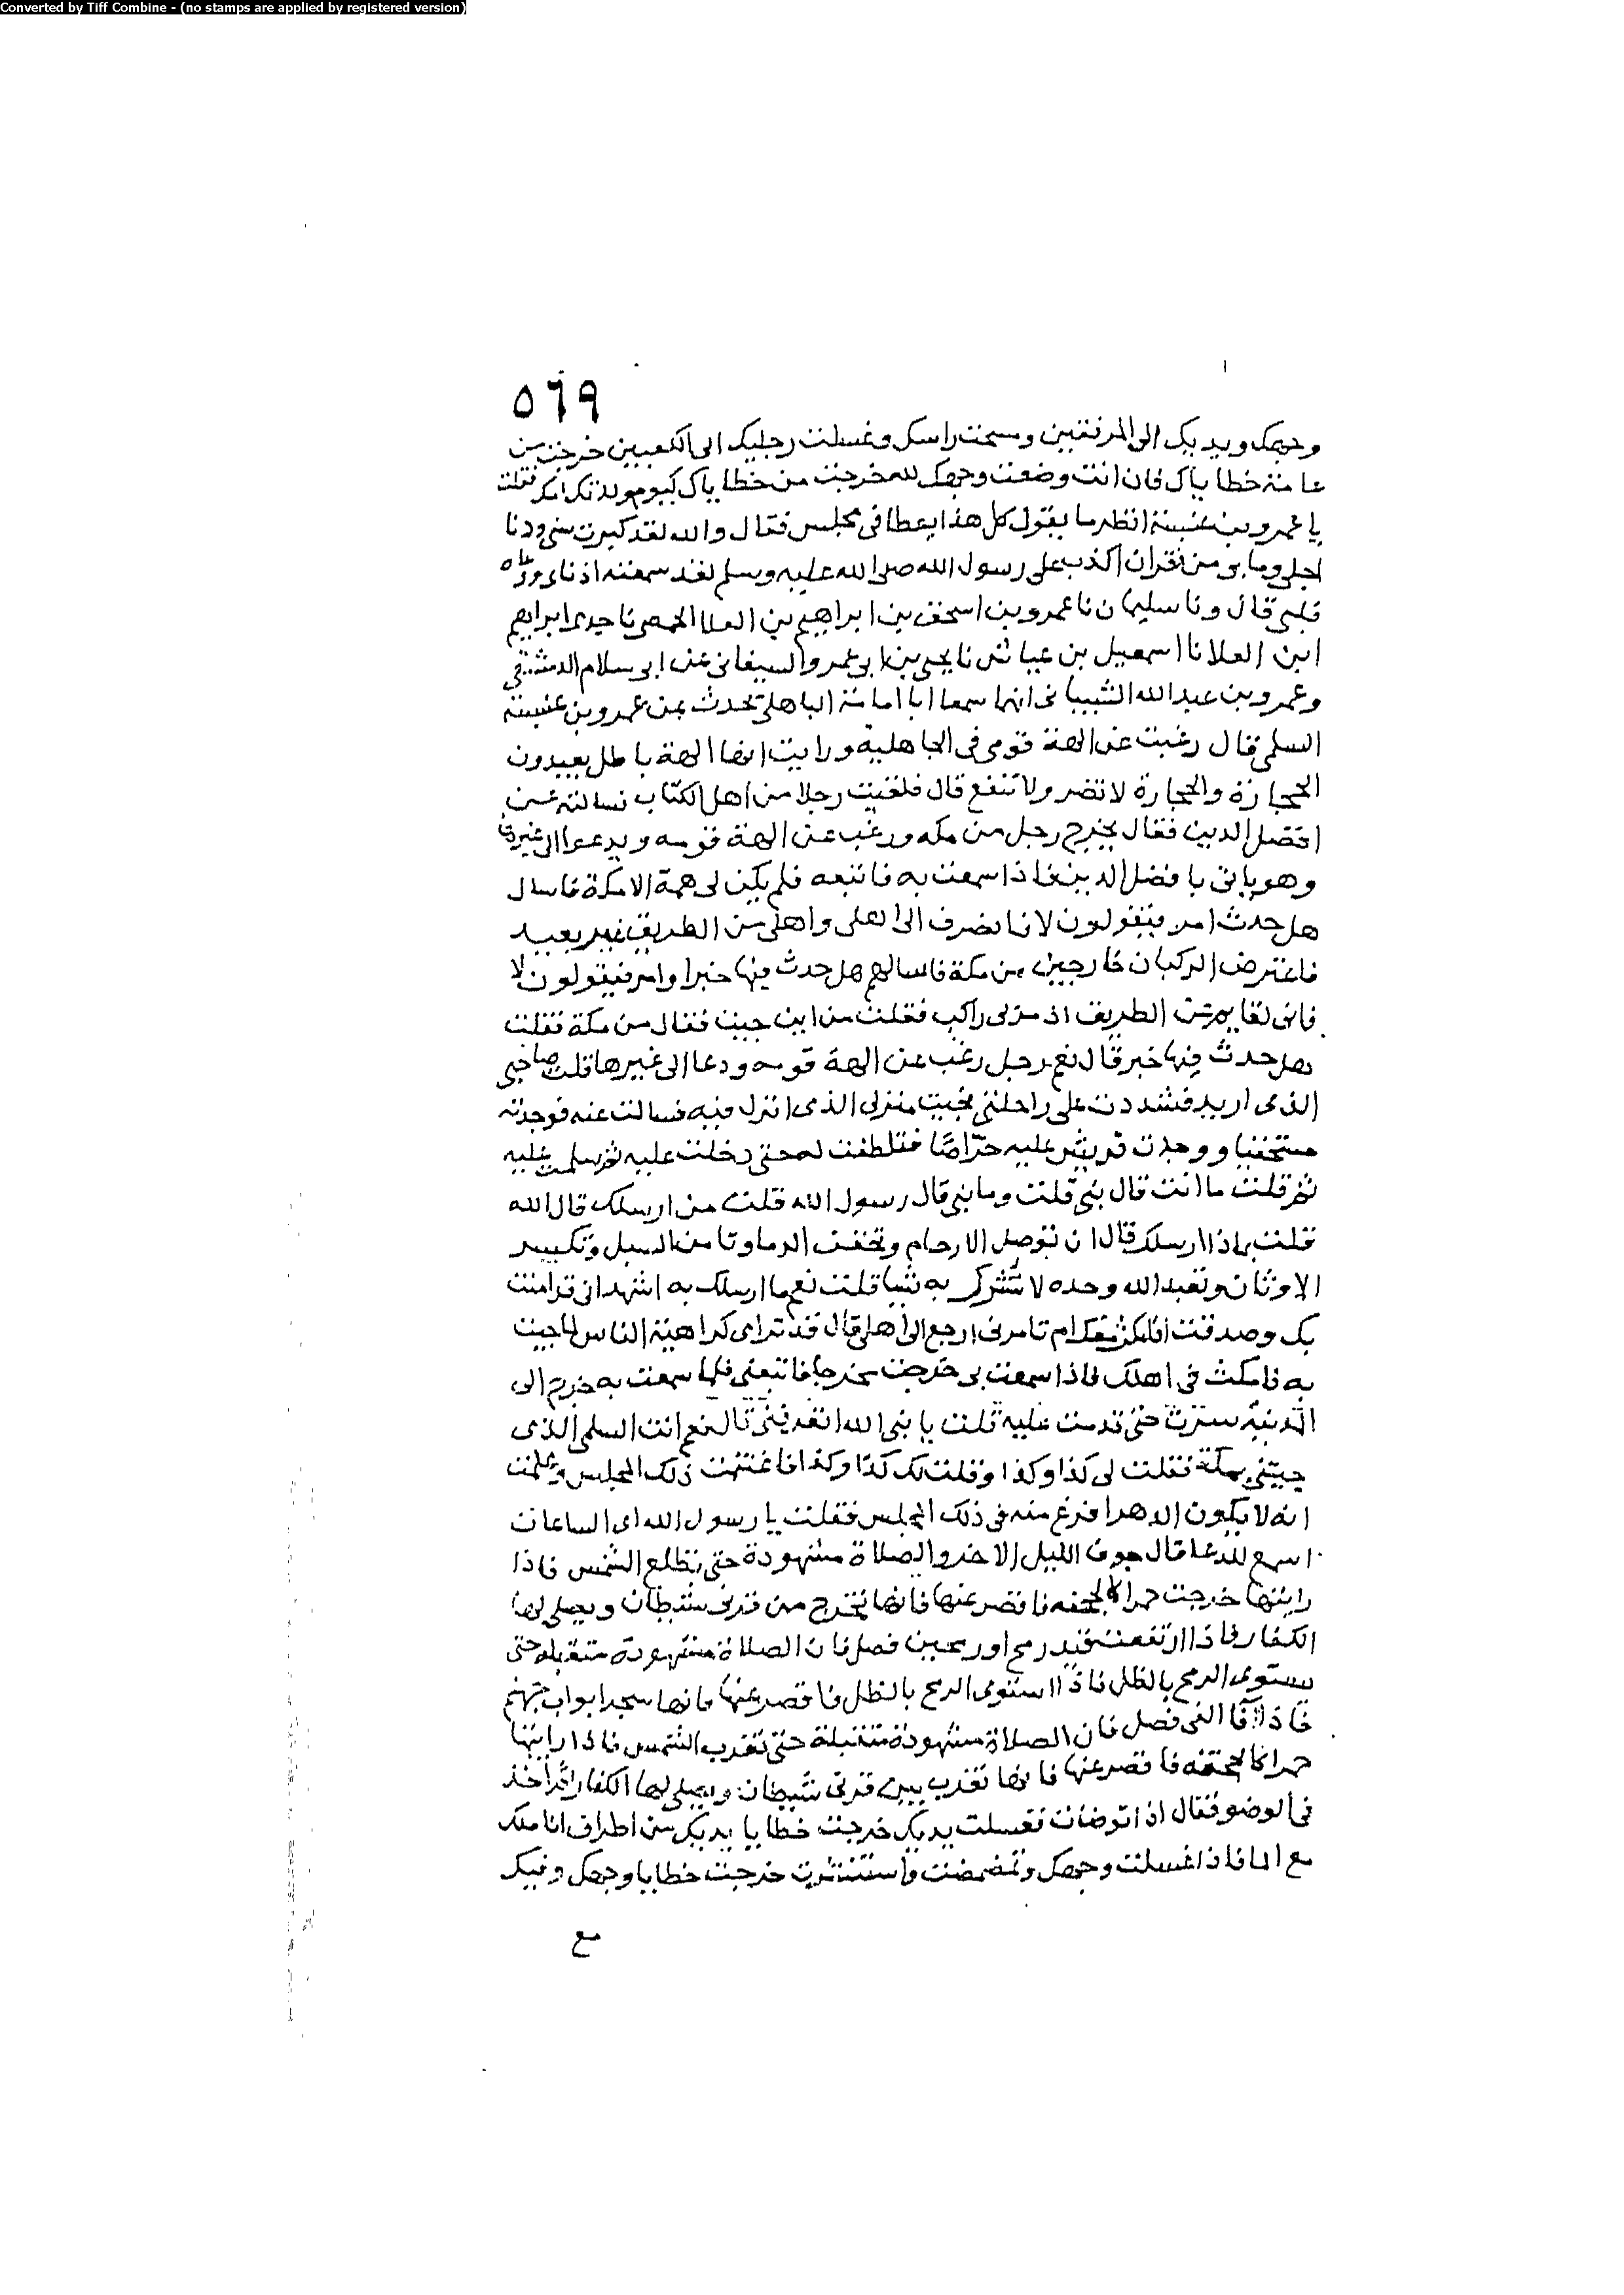 Converted by Tiff Combine - (no stamps are applied by registered version)
٥٦٩
وجهك ويديك الى المرفقين ومسحت راسك وغسلت رجليك الى الكعبين خرجت من
عامة خطاياك فان انت وضعت وجهك لله خرجت من خطاياك كيوم ولدتك امك فقلت
يا عمرو بن عنبسة انظر ما يقول كل هذا يعطا في مجلس فقال والله لقد كبرت سني ودنا
اجلي وما بي من فقر ان اكذب على رسول الله صلى الله عليه وسلم لقد سمعته اذناي ووعاه
قلبي قال ونا سليمان نا عمرو بن اسحق بن ابراهيم بن العلا الحمصي نا جدي ابراهيم
ابن العلا نا اسمعيل بن عياش نا يحيى بن ابي عمرو السيباني عن ابي سلام الدمشقي
وعمرو بن عبد الله الشيباني انهما سمعا ابا امامة الباهلي يحدث عن عمرو بن عنبسة
السلمي قال رغبت عن الهة قومي في الجاهلية ورايت انها الهة باطل يعبدون
الحجارة والحجارة لا تضر ولا تنفع قال فلقيت رجلا من اهل الكتاب فسالته عن
افضل الدين فقال يخرج رجل من مكه ورغب عن الهة قومه ويدعوا الى غيرها
وهو ياتي بافضل الدين فاذا سمعت به فاتبعه فلم يكن لي همة الا مكة فاسال
هل حدث امر فيقولون لا فانصرف الى اهلي واهلي من الطريق غير بعيد
فاعترض الركبان خارجين من مكة فاسالهم هل حدث فيها خبرا وامر فيقولون لا
فاني لقا الطريق اذ مر بي راكب فقلت من اين جيت فقال من مكة فقلت
هل حدث فيها خبر قال نعم رجل رغب عن الهة قومه ودعا الى غيرها قلت صاحبي
الذي اريد فشددت على راحلتي فجيت منزلي الذي انزل فيه فسالت عنه فوجدته
مستخفيا ووجدت قريش عليه حرّاصًا فتلطفت له حتى دخلت عليه ثم سلمت عليه
ثم قلت ما انت قال نبي قلت وما نبي قال رسول الله قلت من ارسلك قال الله
قلت بماذا ارسلك قال ان توصل الارحام وتحقن الدما وتامن السبل وتكسير
الاوثان وتعبد الله وحده لا تشرك به شيا قلت نعما ارسلك به اشهد اني قد امنت
بك وصدقت افامكث معك ام تامرني ارجع الى اهلي قال قد ترى كراهية الناس لما جيت
به فامكث في اهلك فاذا سمعت بي خرجت مخرجا فاتبعني فلما سمعت به خرج الى
المدينة سرت حتى قدمت عليه قلت يا نبي الله اتعرفني قال نعم انت السلمي الذي
جيتني بمكة فقلت لي كذا وكذا وقلت لك كذا وكذا فاغتنمت ذلك المجلس وعلمت
انه لا يكون الدهر افرغ منه في ذلك المجلس فقلت يا رسول الله اي الساعات
اسمع للدعا قال جوف الليل الاخر والصلاة مشهودة حتى تطلع الشمس فاذا
رايتها خرجت حمرا كالحجفه فاقصر عنها فانها تخرج من قرني شيطان ويصلي لها
الكفار فاذا ارتفعت قيد رمح او رمحين فصل فان الصلاة مشهودة متقبله حتى
يستوي الرمح بالظل فاذا استوى الرمح بالظل فاقصر عنها فانها سجر ابواب جهنم
فاذا فا الفي فصل فان الصلاة مشهودة متقبلة حتى تغرب الشمس فاذا رايتها
حمرا كالحجفه فاقصر عنها فانها تغرب بين قرني شيطان ويصلي لها الكفار ثم اخذ
في الوضو فقال اذا توضات فغسلت يديك خرجت خطايا يديك من اطراف اناملك
مع الما فاذا غسلت وجهك وتمضمضت واستنثرت خرجت خطايا وجهك وفيك
مع